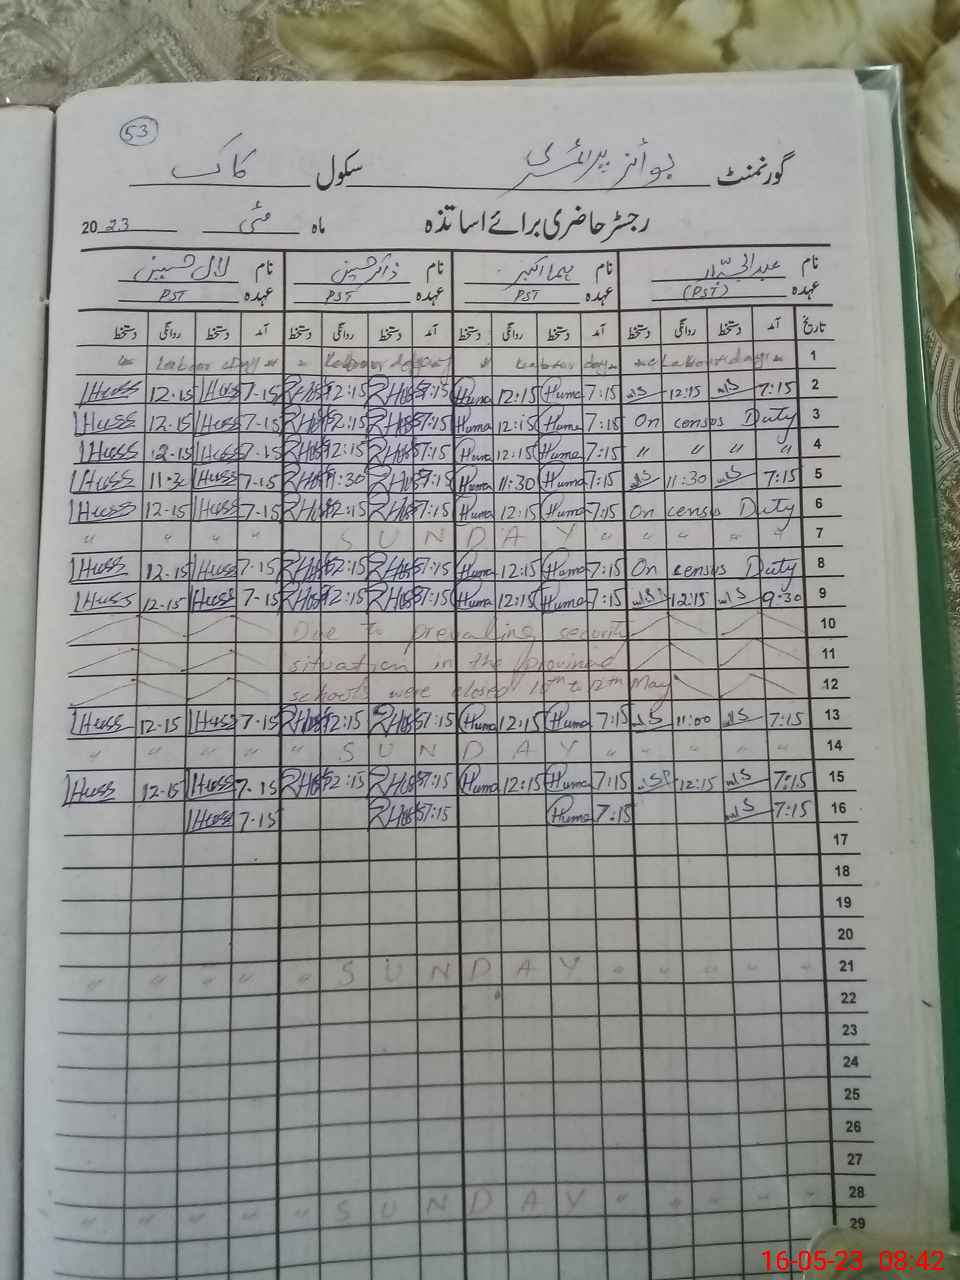 53
گورنمنٹ بوائز پرائمری سکول کاک
رجسٹر حاضری برائے اساتذہ ماہ مئی 2023
نام عبدالجبار نام ہما اکبر نام ذاکر حسین نام لال حسین
عہدہ (PST) عہدہ PST عہدہ PST عہدہ PST
تاریخ آمد دستخط روانگی دستخط آمد دستخط روانگی دستخط آمد دستخط روانگی دستخط آمد دستخط روانگی دستخط
" Labour day " " Labour day " Labour day " Labour day " 1
Huss 12-15 Huss 7-15 12:15 7:15 Huma 12:15 Huma 7:15 12:15 7:15 2
Huss 12-15 Huss 7-15 12:15 7:15 Huma 12:15 Huma 7:15 On census Duty 3
Huss 12-15 Huss 7-15 12:15 7:15 Huma 12:15 Huma 7:15 " " " " 4
Huss 11-30 Huss 7-15 11:30 7:15 Huma 11:30 Huma 7:15 11:30 7:15 5
Huss 12-15 Huss 7-15 12:15 7:15 Huma 12:15 Huma 7:15 On census Duty 6
" " " " S U N D A Y " " " " " 7
Huss 12-15 Huss 7-15 12:15 7:15 Huma 12:15 Huma 7:15 On census Duty 8
Huss 12-15 Huss 7-15 12:15 7:15 Huma 12:15 Huma 7:15 12:15 9:30 9
Due to prevailing security 10
situation in the province 11
schools were closed 10th to 12th May 12
Huss 12-15 Huss 7-15 12:15 7:15 Huma 12:15 Huma 7:15 11:00 7:15 13
" " " " " S U N D A Y " " " " " 14
Huss 12-15 Huss 7-15 12:15 7:15 Huma 12:15 Huma 7:15 12:15 7:15 15
Huss 7-15 7:15 Huma 7:15 7:15 16
17
18
19
20
" " " " " S U N D A Y " " " " " 21
22
23
24
25
26
27
" " " " " S U N D A Y " " " " " 28
29
16-05-23 08:42